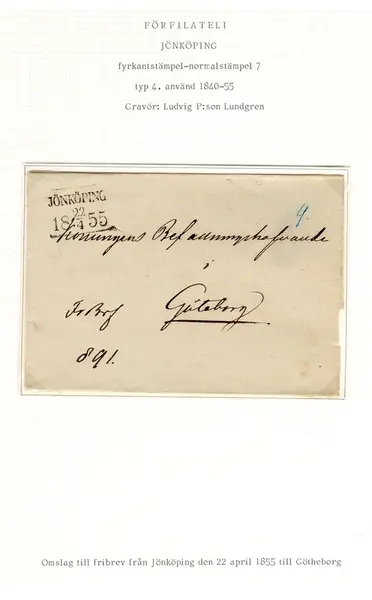 FÖRFILATELI
JÖNKÖPING
fyrkantstämpel-normalstämpel 7
typ 4, använd 1840-55
Gravör: Ludvig P:son Lundgren
JÖNKÖPING
22
18 4 55
4.
Konungens Befallningshafvande
i
Göteborg
FrBrf
891.
Omslag till fribrev från Jönköping den 22 april 1855 till Götheborg